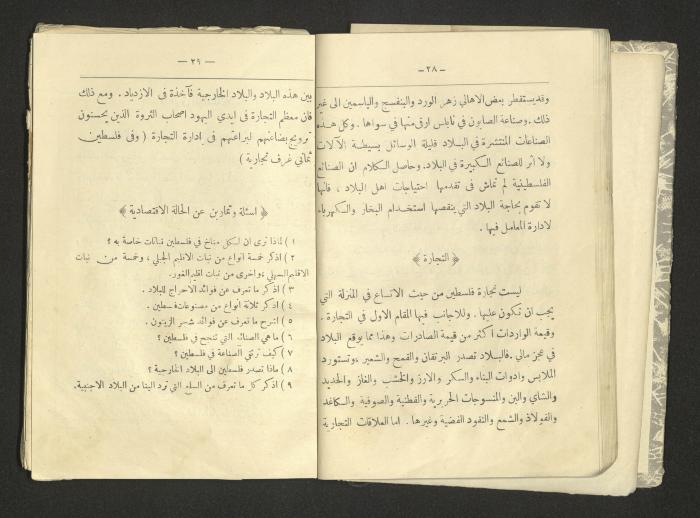 — ٢٨ —
وقد يستقطر بعض الاهالي زهر الورد والبنفسج والياسمين الى غير
ذلك، وصناعة الصابون في نابلس ارقى منها في سواها. وكل هذه
الصناعات المنتشرة في البلاد قليلة الوسائل بسيطة الآلات
ولا اثر للصنائع الكبيرة في البلاد. وحاصل الكلام ان الصنائع
الفلسطينية لم تماش في تقدمها احتياجات اهل البلاد ، فانها
لا تقوم بحاجة البلاد التي ينقصها استخدام البخار والكهرباء
لادارة المعامل فيها .
﴿ التجارة ﴾
ليست تجارة فلسطين من حيث الاتساع في المنزلة التي
يجب ان تكون عليها . وللاجانب فيها المقام الاول في التجارة .
وقيمة الواردات أكثر من قيمة الصادرات وهذا مما يوقع البلاد
في عجز مالي . فالبلاد تصدر البرتقان والقمح والشعير ، وتستورد
الملابس وادوات البناء والسكر والارز والخشب والغاز والحديد
والشاي والبن والمنسوجات الحريرية والقطنية والصوفية والكاغد
والفولاذ والشمع والنقود الفضية وغيرها . اما العلاقات التجارية
— ٢٩ —
بين هذه البلاد والبلاد الخارجية فآخذة في الازدياد . ومع ذلك
فان معظم التجارة في ايدي اليهود اصحاب الثروة الذين يحسنون
ترويج بضائعهم لبراعتهم في إدارة التجارة ( وفي فلسطين
ثماني غرف تجارية )
﴿ اسئلة وتمارين عن الحالة الاقتصادية ﴾
١ ) لماذا ترى ان لكل مناخ في فلسطين نباتات خاصة به ؟
٢ ) اذكر خمسة انواع من نبات الاقليم الجبلي ، وخمسة من نبات
الاقليم السهلي ، واخرى من نبات اقليم الغور.
٣ ) اذكر ما تعرف عن فوائد الاحراج للبلاد .
٤ ) اذكر ثلاثة انواع من مصنوعات فلسطين .
٥ ) اشرح ما تعرف عن فوائد شجر الزيتون .
٦ ) ما هي الصنائع التي تنجح في فلسطين ؟
٧ ) كيف ترتقي الصناعة في فلسطين ؟
٨ ) ماذا تصدر فلسطين الى البلاد الخارجية ؟
٩ ) اذكر كل ما تعرف من السلع التي ترد الينا من البلاد الاجنبية.